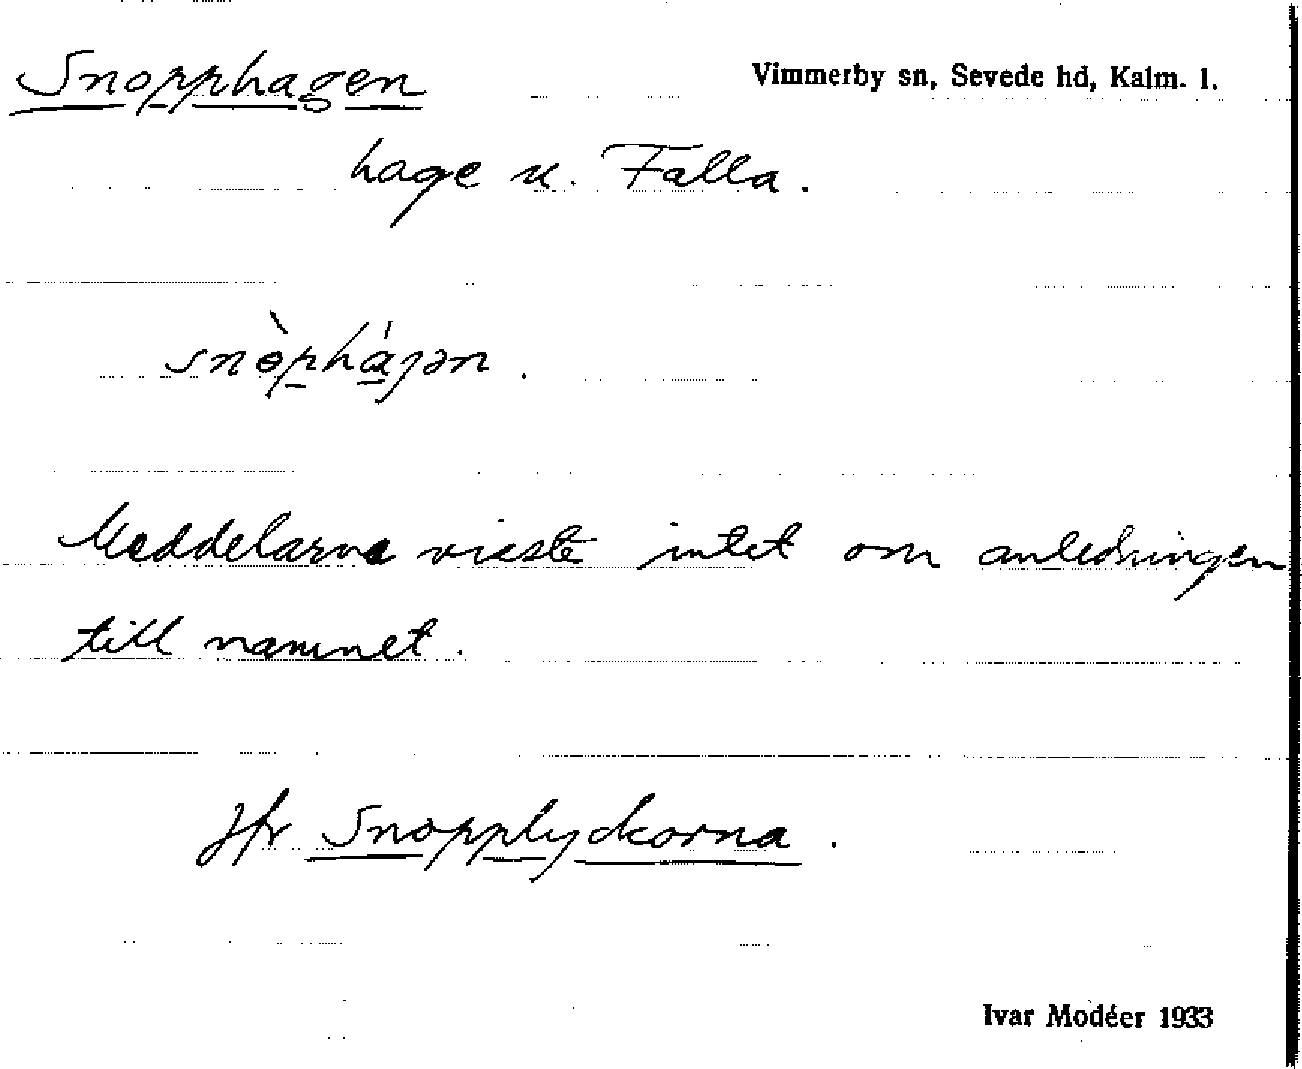 Snopphagen
Vimmerby sn, Sevede hd, Kalm. l.
hage u. Falla.
snɵ̀phájən.
Meddelarna visste intet om anledningen
till namnet.
Jfr Snopplyckorna.
Ivar Modéer 1933